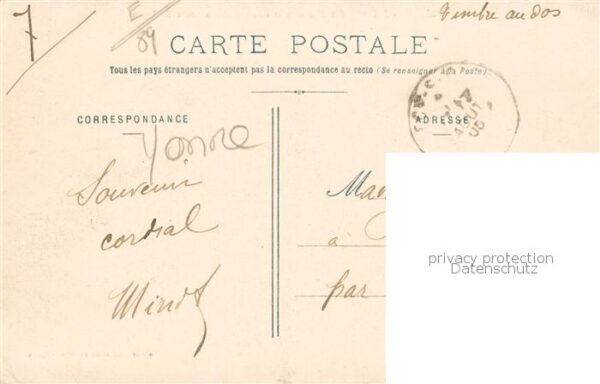 7
E/89
Timbre au dos
CARTE POSTALE
Tous les pays étrangers n'acceptent pas la correspondance au recto (Se renseigner à la Poste)
CORRESPONDANCE
ADRESSE
17
AOUT
06
Yonne
Souvenir
cordial
Minot
à
par
privacy protection
Datenschutz